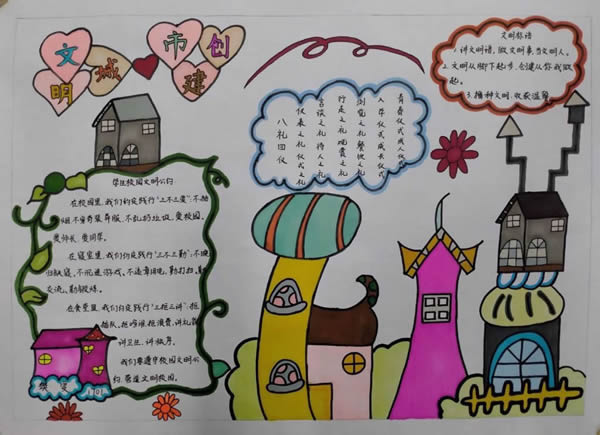 文明城市创建
文明标语
1.讲文明语,做文明事,当文明人。
2.文明从脚下起步,创建从你我做
起。
3.播种文明,收获温馨
八礼四仪
仪表之礼 仪式之礼
言谈之礼 待人之礼
行走之礼 观赏之礼
游览之礼 餐饮之礼
入学仪式 成长仪式
青春仪式 成人仪式
学生校园文明公约
在校园里,我们约定践行“三不三爱”:不抽
烟、不穿奇装异服、不乱扔垃圾,爱校园、
爱师长、爱同学。
在寝室里,我们约定践行“三不三勤”:不晚
归就寝、不沉迷游戏、不违章用电,勤打扫、勤
交流、勤锻炼。
在食堂里,我们约定践行“三拒三讲”:拒
插队、拒喧哗、拒浪费,讲礼貌、
讲卫生、讲秩序。
我们要遵守校园文明公
约,营造文明校园。